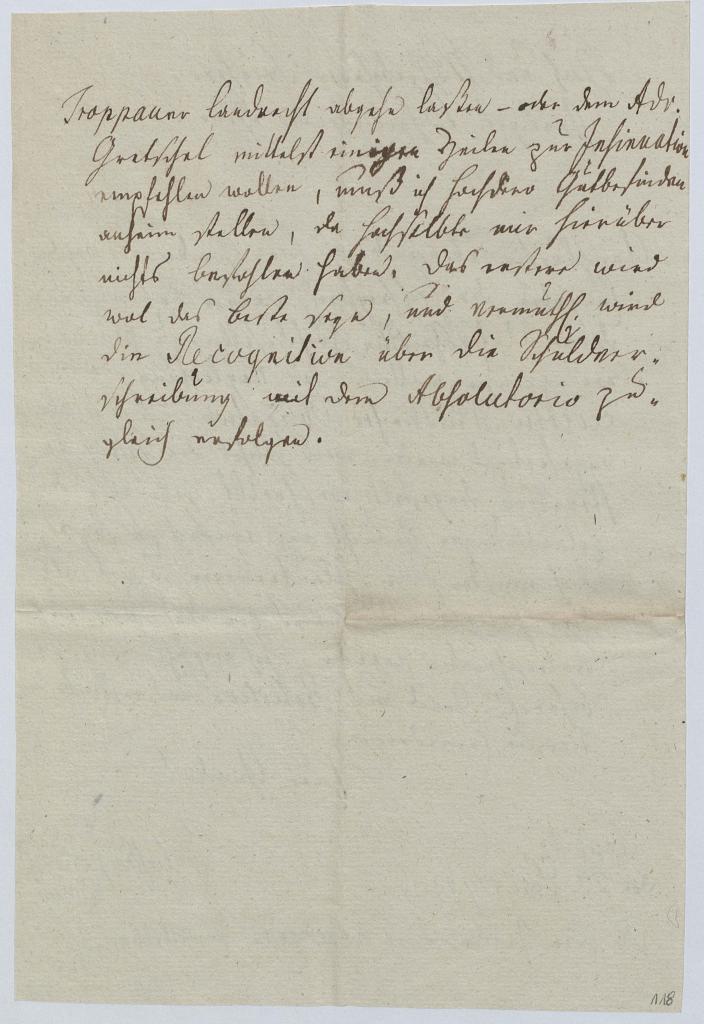 Troppauer Landrecht abgehn laßen – oder dem Adv.
Gretschel mittelst einigen Zeilen zur Insinuation
empfehlen wollen, muß ich hochdero Gutbefinden
anheim stellen, da hochselbte mir hierüber
nichts befohlen haben. Das erstere wird
wol das beste seyn, und vermuthl. wird
die Recognition über die Schuldver-
schreibung mit dem Absolutorio zu-
gleich erfolgen.
118